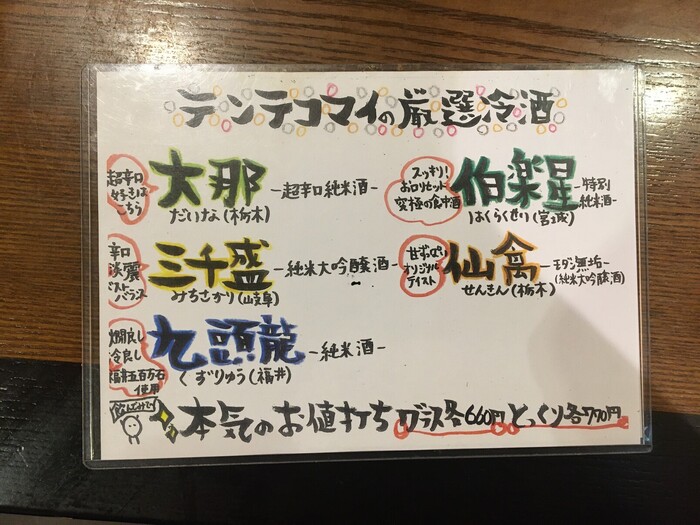 テンテコマイの厳選冷酒
超辛口
好きは
こちら
大那
-超辛口純米酒-
だいな(栃木)
スッキリ!
お口リセット
究極の食中酒
伯楽星
-特別
純米酒-
はくらくせい(宮城)
辛口
淡麗
ベストバランス
三千盛
-純米大吟醸酒-
みちさかり(岐阜)
甘ずっぱい
オリジナル
テイスト
仙禽
-モダン無垢-
(純米大吟醸酒)
せんきん(栃木)
燗良し
冷良し
福井五百万石
使用
九頭龍
-純米酒-
くずりゅう(福井)
飲んでみて!
本気のお値打ち グラス各660円 とっくり各770円